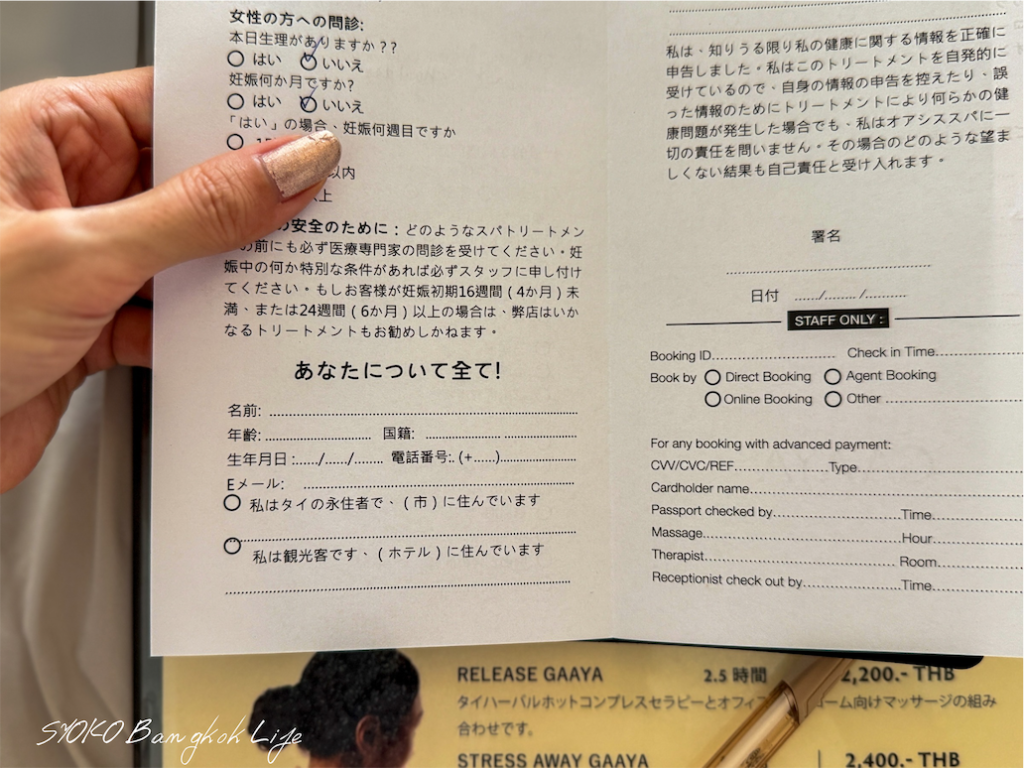 女性の方への問診:
本日生理がありますか??
はい いいえ
妊娠何か月ですか?
はい いいえ
「はい」の場合、妊娠何週目ですか
以内
の安全のために:どのようなスパトリートメン
の前にも必ず医療専門家の問診を受けてください。妊
娠中の何か特別な条件があれば必ずスタッフに申し付け
てください。もしお客様が妊娠初期16週間(4か月)未
満、または24週間(6か月)以上の場合は、弊店はいか
なるトリートメントもお勧めしかねます。
あなたについて全て!
名前:
年齢: 国籍:
生年月日:....../....../........ 電話番号:. (+......)
Eメール:
私はタイの永住者で、(市)に住んでいます
私は観光客です、(ホテル)に住んでいます
私は、知りうる限り私の健康に関する情報を正確に
申告しました。私はこのトリートメントを自発的に
受けているので、自身の情報の申告を控えたり、誤
った情報のためにトリートメントにより何らかの健
康問題が発生した場合でも、私はオアシススパに一
切の責任を問いません。その場合のどのような望ま
しくない結果も自己責任と受け入れます。
署名
日付 ....../......../..........
STAFF ONLY :
Booking ID Check in Time
Book by Direct Booking Agent Booking
Online Booking Other
For any booking with advanced payment:
CVV/CVC/REF Type
Cardholder name
Passport checked by Time
Massage Hour
Therapist Room
Receptionist check out by Time
RELEASE GAAYA 2.5 時間 2,200.- THB
タイハーバルホットコンプレスセラピーとオフィス ローム向けマッサージの組み
合わせです。
STRESS AWAY GAAYA 2,400.- THB
SYOKO Bangkok Life